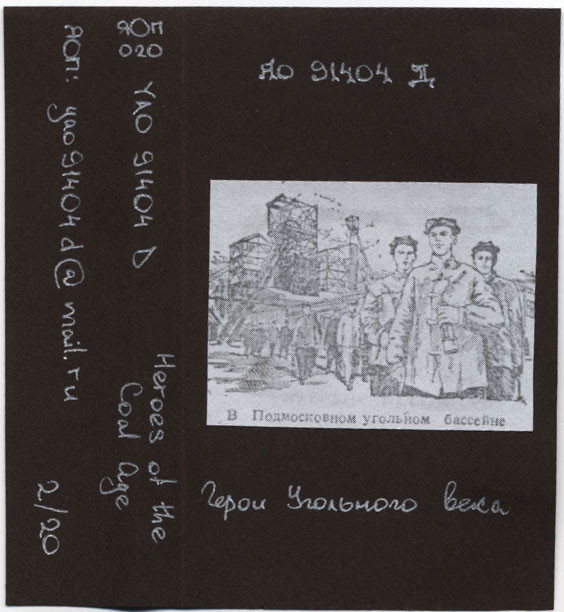 ЯОП
020
ЯОП: yao91404d@mail.ru
YAO 91404 D
Heroes of the
Coal Age
2/20
ЯО 91404 Д
В Подмосковном угольном бассейне
Герои Угольного века